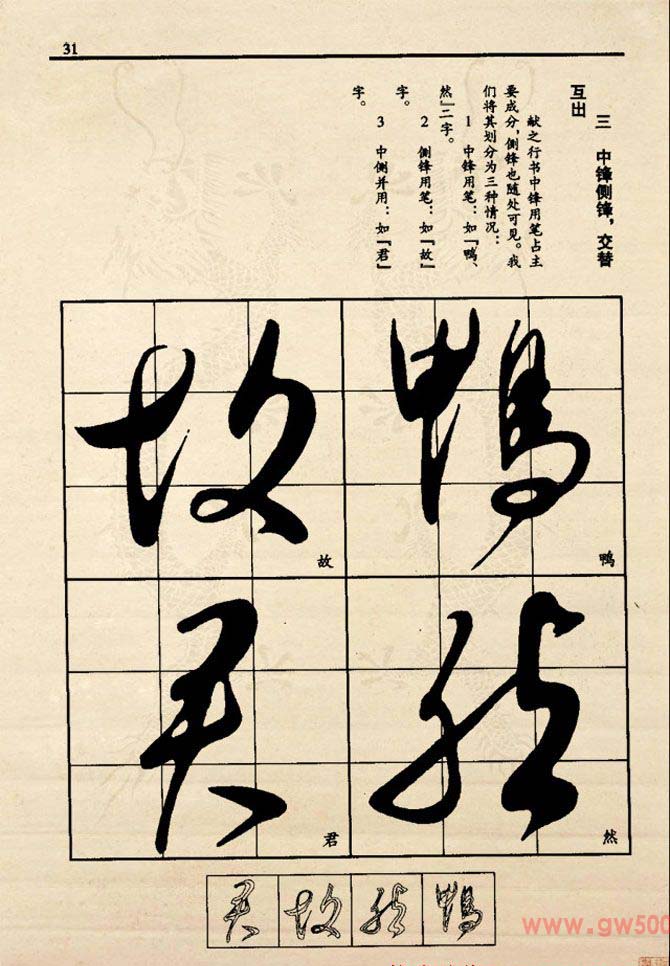 31
三 中锋侧锋，交替
互出
献之行书中锋用笔占主
要成分，侧锋也随处可见。我
们将其划分为三种情况：
1 中锋用笔：如『鸭、
然』二字。
2 侧锋用笔：如『故』
字。
3 中侧并用：如『君』
字。
鸭
故
鸭
故
然
君
然
君
君 故 然 鸭
www.gw500